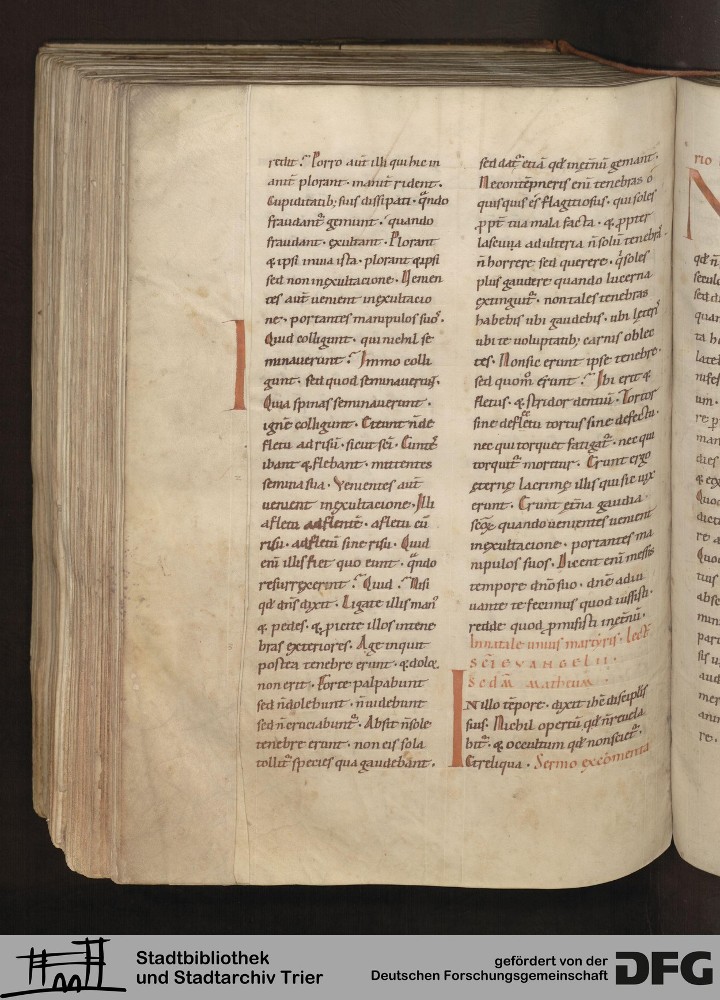 redit. Porro aut̄ illi qui hic in
anit̄ plorant. manit̄ rident.
Cupiditatib; suis dissipati. q̄ndo
fraudant᷑ gemunt. quando
fraudant. exultant. Plorant
& ipsi in uia ista. plorant & ipsi
sed non in exultacione. Uenien
tes aut̄ uenient in exultacio
ne. portantes manipulos suoˢ.
Quid colligunt. qui nichil se
minauerunt? Immo colli
gunt. sed quod seminauerunt.
Quia spinas seminauerunt.
ignē colligunt. Et eunt n̄ de
fletu ad risū. sicut sc̄i.
ibant & flebant. mittentes
semina sua. Venientes aut̄
uenient in exultacione. Illi
a fletu ad fletū. a fletu cū
risu. ad fletū sine risu. Quid
enī illis fiet quo eunt. q̄ndo
resurrexerint? Quid? Nisi
qd̄ dn̄s dixit. Ligate illis man᷒
& pedes. & p̱icite illos in tene
bras exteriores. Age inquit
postea tenebre erunt. & dolor
non erit. Forte palpabunt
sed n̄ dolebunt. n̄ uidebunt
sed n̄ cruciabunt᷑. Absit n̄ sole
tenebre erunt. non eis sola
tollit᷑ species qua gaudebant.
sed dat᷑ etiā qd̄ in et̄nū gemant.
Nec contēpneris enī tenebras o
quisquis es flagitiosus. qui soles
ꝓpt̄ tua mala facta. & ꝓpter
lasciuia adulteria n̄ solū tenebraˢ
n̄ horrere sed querere. q̊ soles
plus gaudere quando lucerna
extinguit᷑. non tales tenebras
habebis ubi gaudebis. ubi leteris
ubi te uoluptatib; carnis oblec
tes. Non sic erunt ipse tenebre.
sed quom̊ erunt? Ibi erit &
fletus. & stridor dentiū. Tortor
sine defectu tortus sine defectu.
nec qui torquet fatigat᷑. nec qui
torquit᷑ moritur. Erunt ergo
eterne lacrime illis qui sic uix
erunt. Erunt et̄na gaudia
sc̄oꝝ quando uenientes uenient
in exultacione. portantes ma
nipulos suos. Dicent enī messis
tempore dn̄o suo. dn̄e adiu
uante te fecimus quod iussisti.
redde quod ꝓmisisti in et̄nū.
In natale unius martyris. Lect̄
SC̄I EVANGELII.
Scdā Matheum.
IN illo tēpore. dixit ih̄c discipulis
suis. Nichil opertū qd̄ n̄ reuela
bit᷑. & occultum qd̄ non sciet᷑.
Et reliqua. Sermo ex cōmenta
rio
Stadtbibliothek
und Stadtarchiv Trier
gefördert von der
Deutschen Forschungsgemeinschaft
DFG